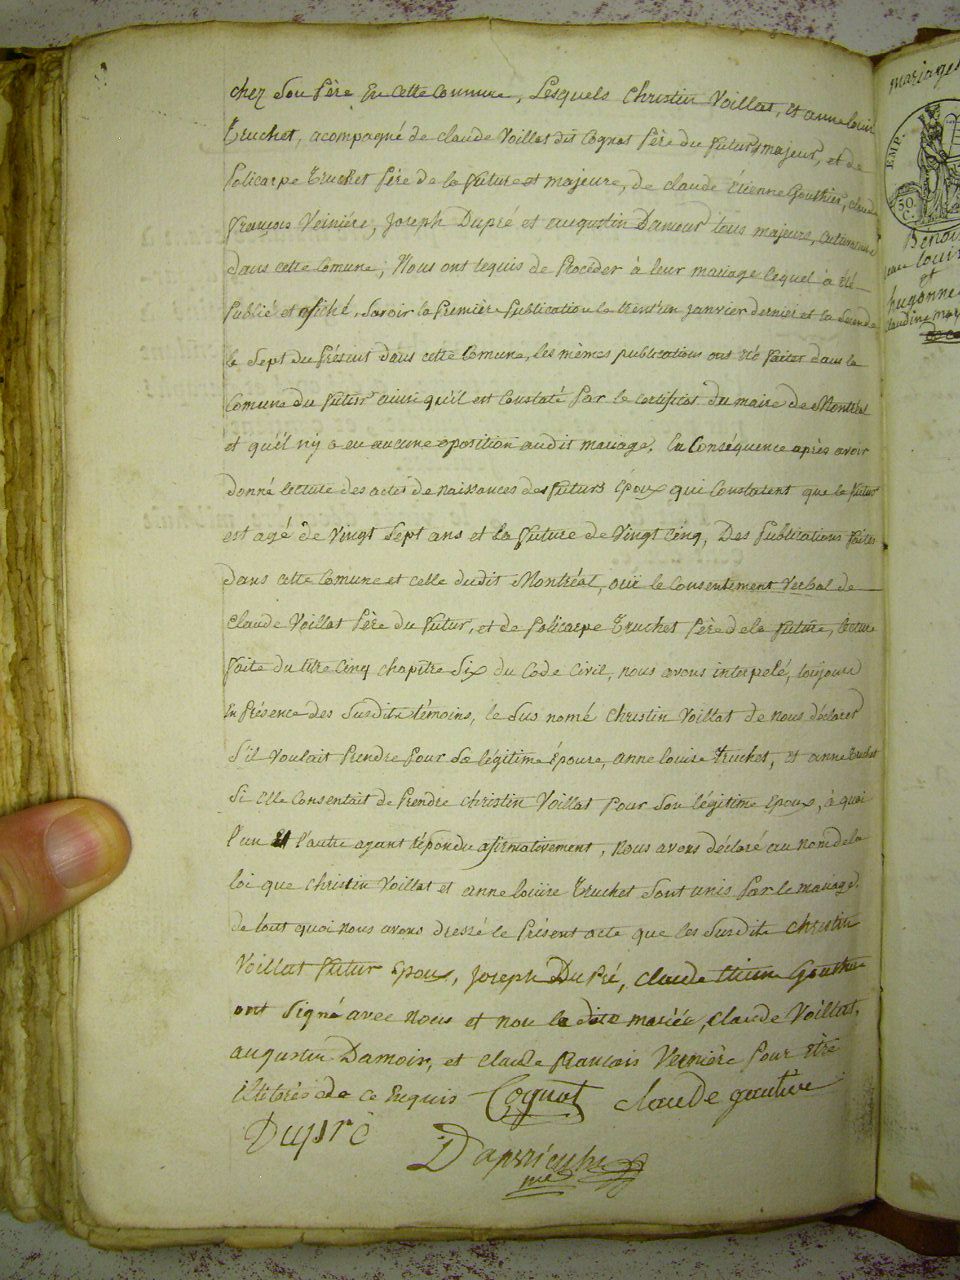 chez Son Père En cette Commune, Lesquels Christin Voillat, et anne louise
Truchet, acompagné de claude Voillat dit Cognat Père du futur majeur, et de
Policarpe Truchet Père de la future et majeure, de claude Etienne Gouthier, claude
françois Veiniére, Joseph Dupré et augustin Damour tous majeurs, cultivateurs
dans cette Comune, Nous ont requis de Procéder à leur mariage lequel à été
Publié et afiché, Savoir la Première Publication le trent'un janvier dernier et la Seconde
le Sept du Présent dans cette Comune, les mèmes publications ont été faites dans la
Comune du futur ainsi qu'il est Constaté Par le certificat du maire de Montréal
et qu'il n'y a eu aucune oposition audit mariage. En Conséquence après avoir
donné lecture des actes de naissances des futurs Époux qui Constatent que le futur
est agé de Vingt Sept ans et la future de Vingt Cinq, Des Publications faites
dans cette Comune et celle dudit Montréal, ouï le Consentement Verbal de
Claude Voillat Père du futur, et de Policarpe Truchet Père de la future, lecture
faite du titre Cinq chapitre Six du Code Civil, nous avons interpelé, toujours
En Présence des Susdits témoins, le Sus nomé Christin Voillat de nous déclarer
S'il Voulait Prendre Pour Sa légitime Épouse, anne louise Truchet, et anne Truchet
Si Elle Consentait de Prendre Christin Voillat Pour Son légitime Epoux, à quoi
l'un Et l'autre ayant répondu afirmativement, Nous avons déclaré au nom de la
loi que Christin Voillat et anne louise Truchet Sont unis Par le mariage.
de tout quoi nous avons dressé le Présent acte que les Susdits Christin
Voillat futur Epoux, Joseph Dupré, Claude Etienne Gouthier
ont Signé avec Nous et non la dite mariée, claude Voillat,
augustin Damoir, et Claude francois Vernière Pour être
illiterés de ce Enquis Cognat claude goutier
Dupré
maire
mariages
EMP.
30
C.
Benoit
jean louis
et
hugonnet
claudine